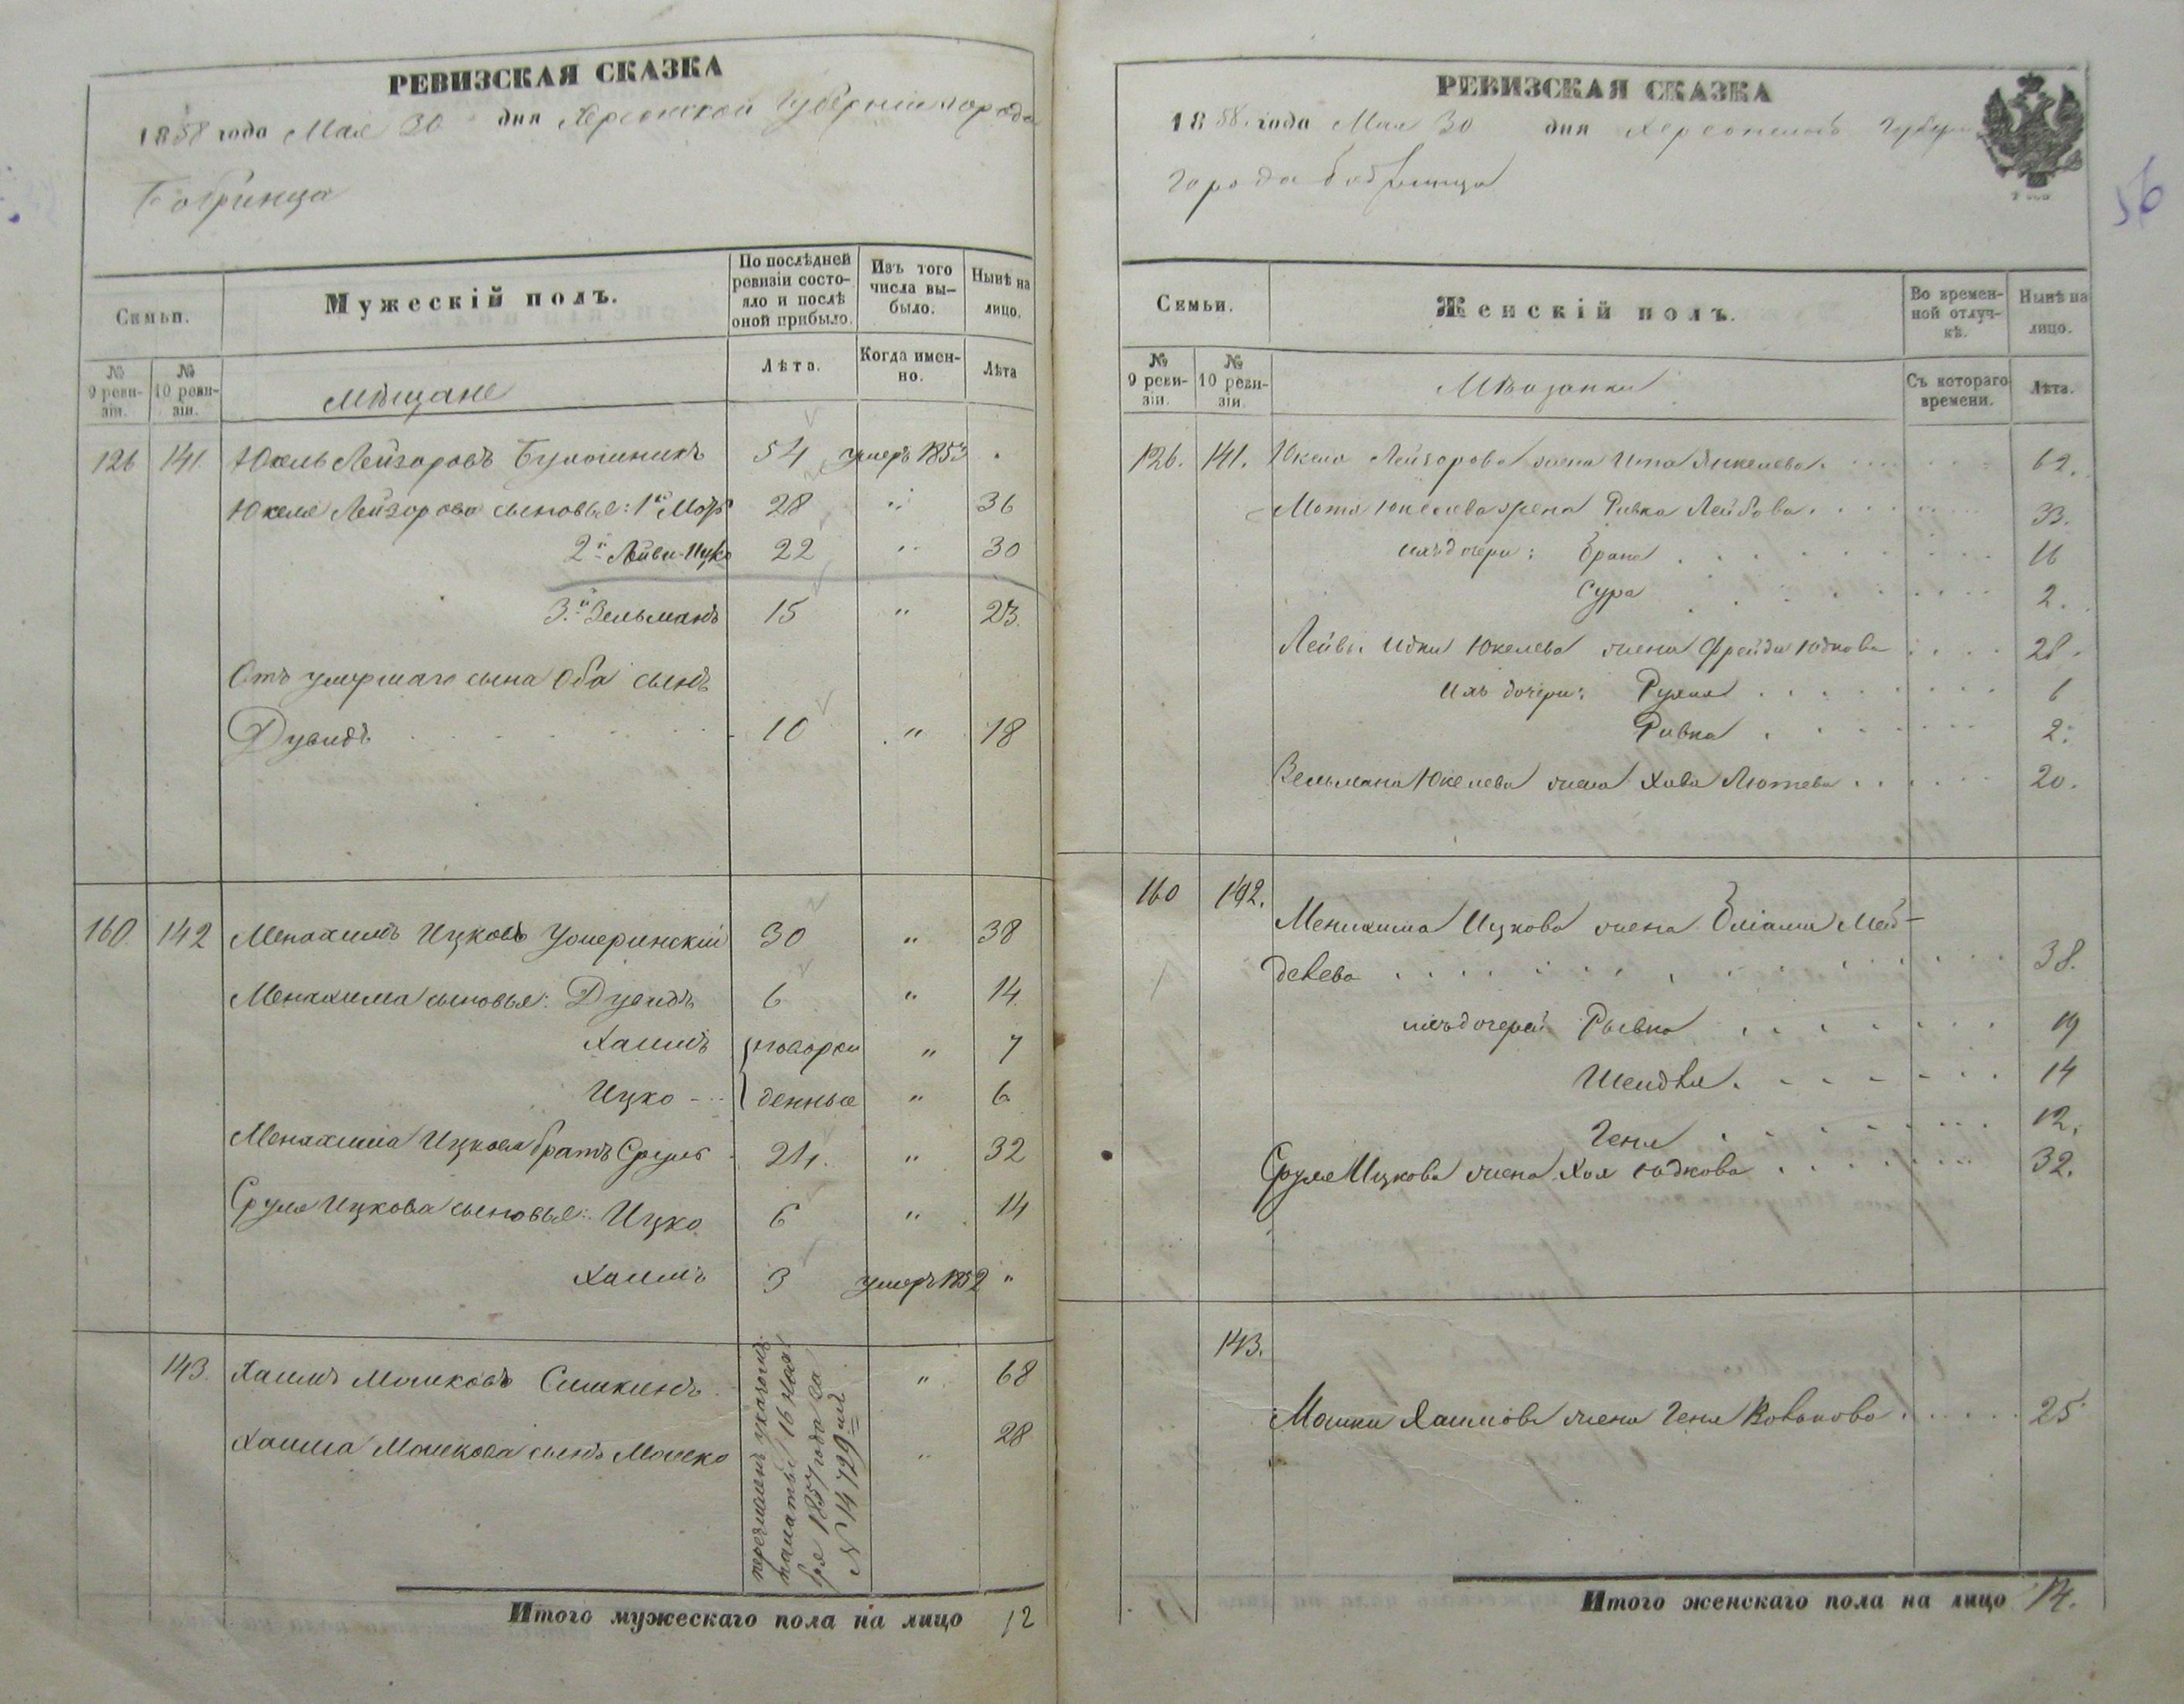 РЕВИЗСКАЯ СКАЗКА
1858 года Мая 30 дня Херсонской Губернии города
Бобринца
Семьи.
Мужескій полъ.
По послѣдней ревизіи состояло и послѣ оной прибыло.
Изъ того числа выбыло.
Нынѣ на лицо.
№ 9 ревизіи.
№ 10 ревизіи.
Мѣщане
Лѣта.
Когда именно.
Лѣта
126 141. Юкель Лейзоровъ 54 умеръ 1853
Юкеля Лейзорова сыновья: 1й Мотъ 28 " 36
2й Лейви-Ицко 22 " 30
3й Зельманъ 15 " 23.
Отъ умершаго сына сынъ
Дувидъ 10 " 18
160. 142 Менахимъ Ицковъ 30 " 38
Менахима сыновья: Дувидъ 6 " 14
Хаимъ новорож " 7
Ицко денные " 6
Менахима Ицкова братъ Сруль 24. " 32
Сруля Ицкова сыновья: Ицко 6 " 14
Хаимъ 3 умеръ 1852 "
143. Хаимъ Мошковъ " 68
Хаима Мошкова сынъ Мошко " 28
указомъ
палаты 16 Ноя
бря 1857 года за
N 14729мъ
Итого мужескаго пола на лицо 12
РЕВИЗСКАЯ СКАЗКА
1858. года Мая 30 дня Херсонской Губерн
города Бобринца
56
Семьи.
Женскій полъ.
Во временной отлучкѣ.
Нынѣ на лицо.
№ 9 ревизіи.
№ 10 ревизіи.
Мѣщанки
Съ котораго времени.
Лѣта.
126. 141. Юкеля Лейзорова жена 62.
Мотя Юкелева жена Ривка Лейбова. 33.
ихъ дочери: 16
Сура 2.
Лейви Ицки Юкелева жена Фрейда Юдкова 28.
ихъ дочери: Рухля 6
Ривка 2.
Зельмана Юкелева жена Хава 20.
160 142. Менахима Ицкова жена
38.
ихъ дочери: Рывка 19
Шендля. 14
Геня 12.
Сруля Ицкова жена Хая Юдкова 32.
143.
Мошки Хаимова жена Геня 25
Итого женскаго пола на лицо 14.